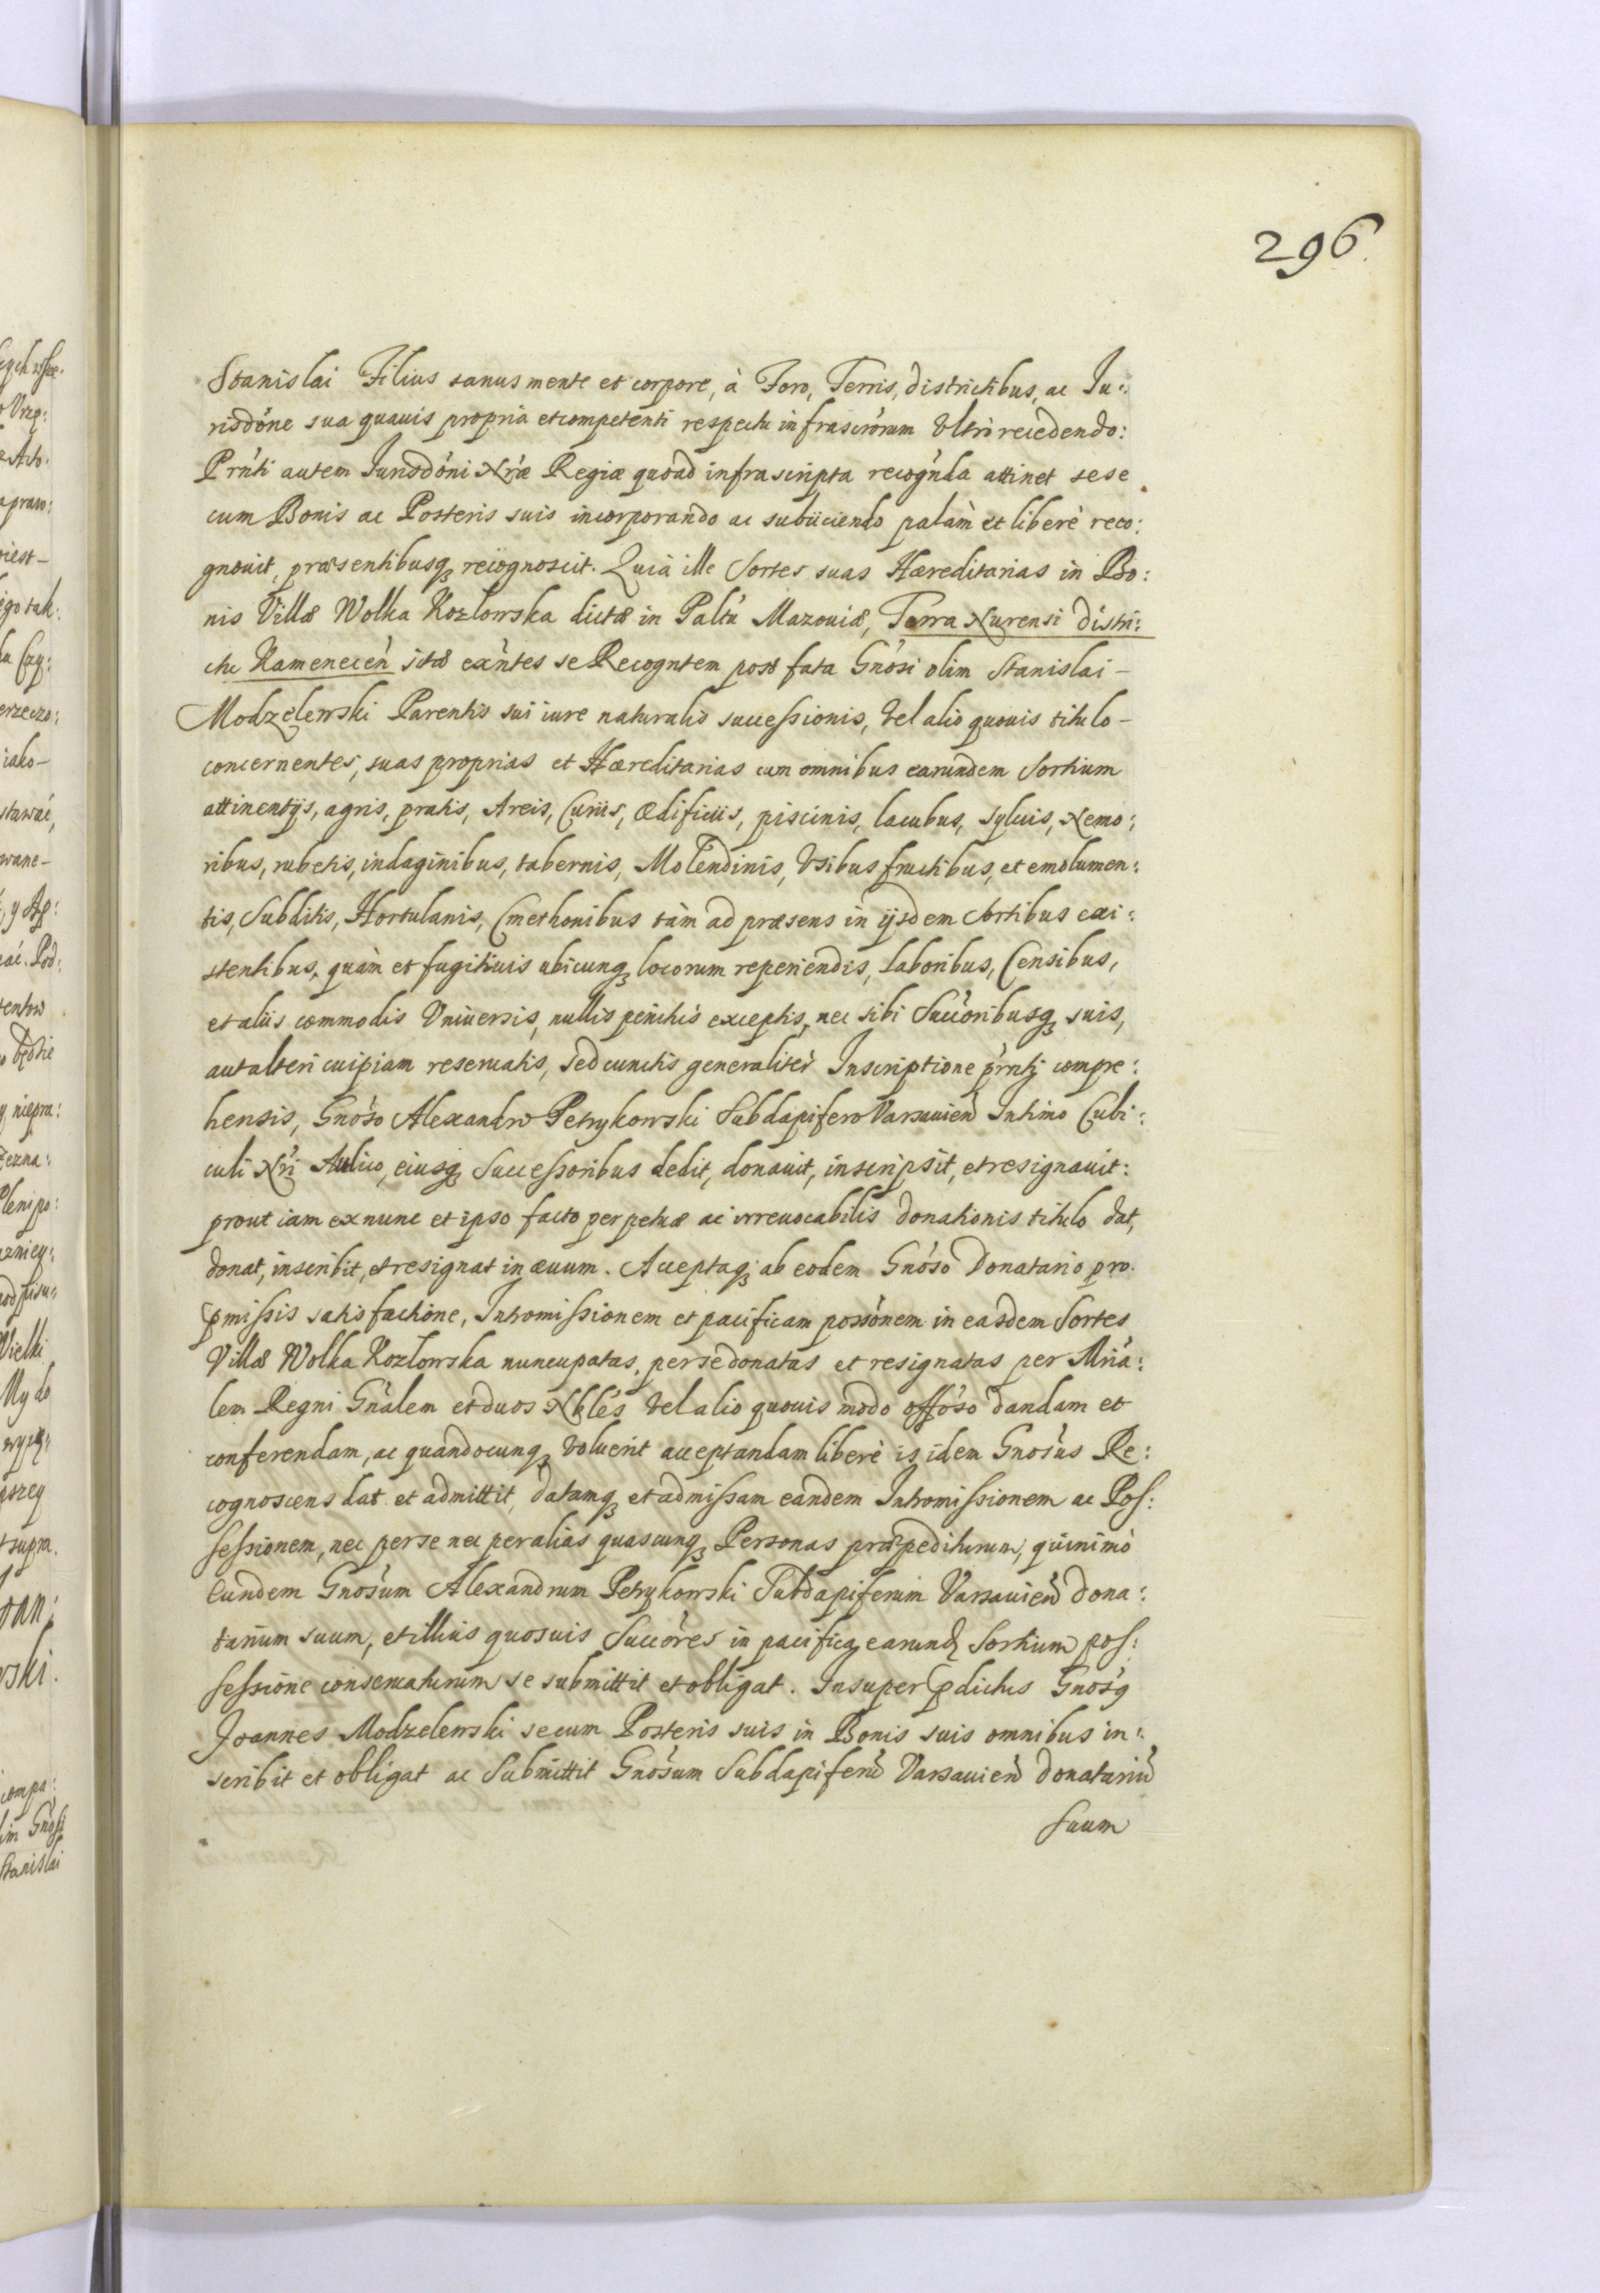 296.
Stanislai Filius sanus mente et corpore, à Foro, Terris, districtibus, ac Ju:
risdóne sua quauis propria et competenti respectu infrascrórum Vltrò recedendo:
Prńti autem Jurisdóni Nŕæ Regiæ quoad infrascripta recogńda attinet sese
cum Bonis ac Posteris suis incorporando ac subiiciendo palàm et liberè reco:
gnouit, præsentibusq₃ recognoscit. Quià ille Sortes suas Hæreditarias in Bo:
nis Villæ Wolka Kozlowska dictæ in Paltú Mazouiæ, Terra Nurensi Distri:
ctu Kameneceń sitæ exńtes se Recogntem post fata Gnósi olim Stanislai –
Modzelewski Parentis sui iure naturalis successionis, Vel alio quouis titulo –
concernentes, suas proprias et Hæreditarias cum omnibus earundem Sortium
attinentijs, agris, pratis, Areis, Curiis, ædificiis, piscinis, lacubus, syluis, Nemo:
ribus, rubetis, indaginibus, tabernis, Molendinis, Vsibus fructibus, et emolumen:
tis, Subditis, Hortulanis, Cmethonibus tàm ad præsens in ijsdem Sortibus exi:
stentibus, quàm et fugitiuis ubicunq₃ locorum reperiendis, Laboribus, Censibus,
et aliis commodis Vniuersis, nullis penitùs exceptis, nec sibi Succóribusq₃ suis,
aut alteri cuipiam reseruatis, sed cunctis generalitèr Inscriptione prńtj compre:
hensis, Gnóso Alexandro Petrykowski Subdapifero Varsauień Intimo Cubi:
culi Nŕi Aulico, eiusq₃ Successoribus dedit, donauit, inscripsit, et resignauit:
prout iam ex nunc et ipso facto perpetuæ ac irreuocabilis donationis titulo dat,
donat, inscribit, et resignat in æuum. Acceptaq₃ ab eodem Gnóso Donatario pro
pmissis satisfactione, Intromissionem et pacificam possónem in easdem Sortes
Villæ Wolka Kozlowska nuncupatas, per se donatas et resignatas per Mńia:
lem Regni Gńalem et duos Nblés Vel alio quouis modo offóso dandam et
conferendam, ac quandocunq₃ Voluerit acceptandam liberè is idem Gnosús Re:
cognoscens dat et admittit, datamq₃ et admissam eandem Intromissionem ac Pos:
sessionem, nec per se nec per alias quascunq₃ Personas præpediturum, quinimò
Eundem Gnosúm Alexandrum Petrykowski Subdapiferum Varsauień dona:
tarium suum, et illius quosuis Succóres in pacifica earund₃ Sortium pos:
sessione conseruaturum se submittit et obligat. Insuper pdictus Gnósq
Joannes Modzelewski se cum Posteris suis in Bonis suis omnibus in:
scribit et obligat ac Submittit Gnósum Subdapiferū Varsauień Donatariū
suum